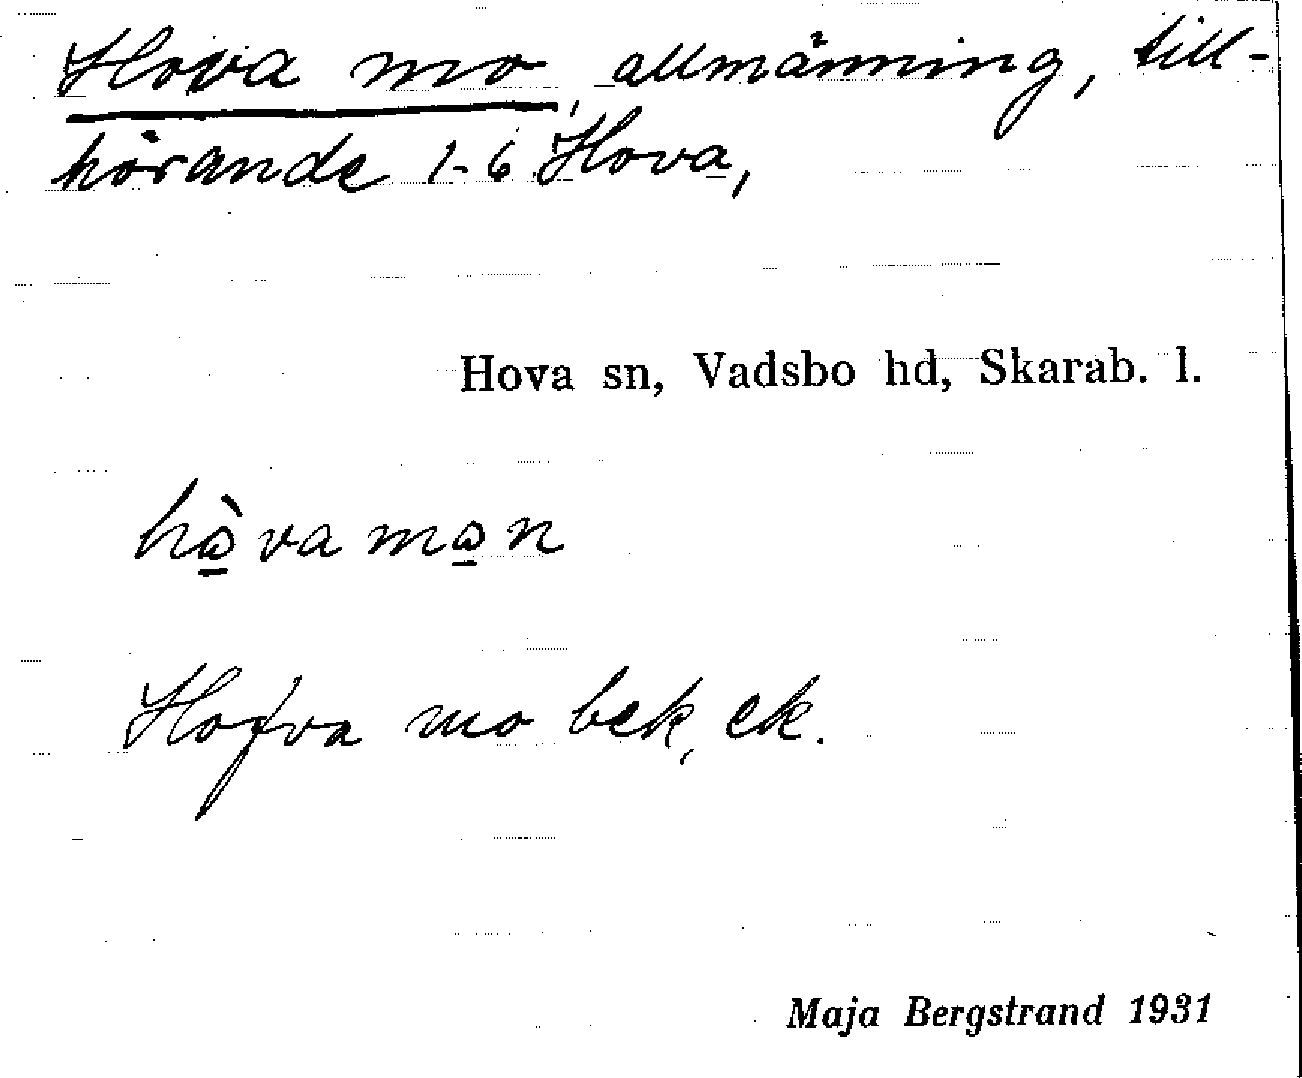 Hova mo, allmänning, till-
hörande 1-6 Hova,
Hova sn, Vadsbo hd, Skarab. l.
hò̱va mo̱n
Hofva mo bek, ek.
Maja Bergstrand 1931